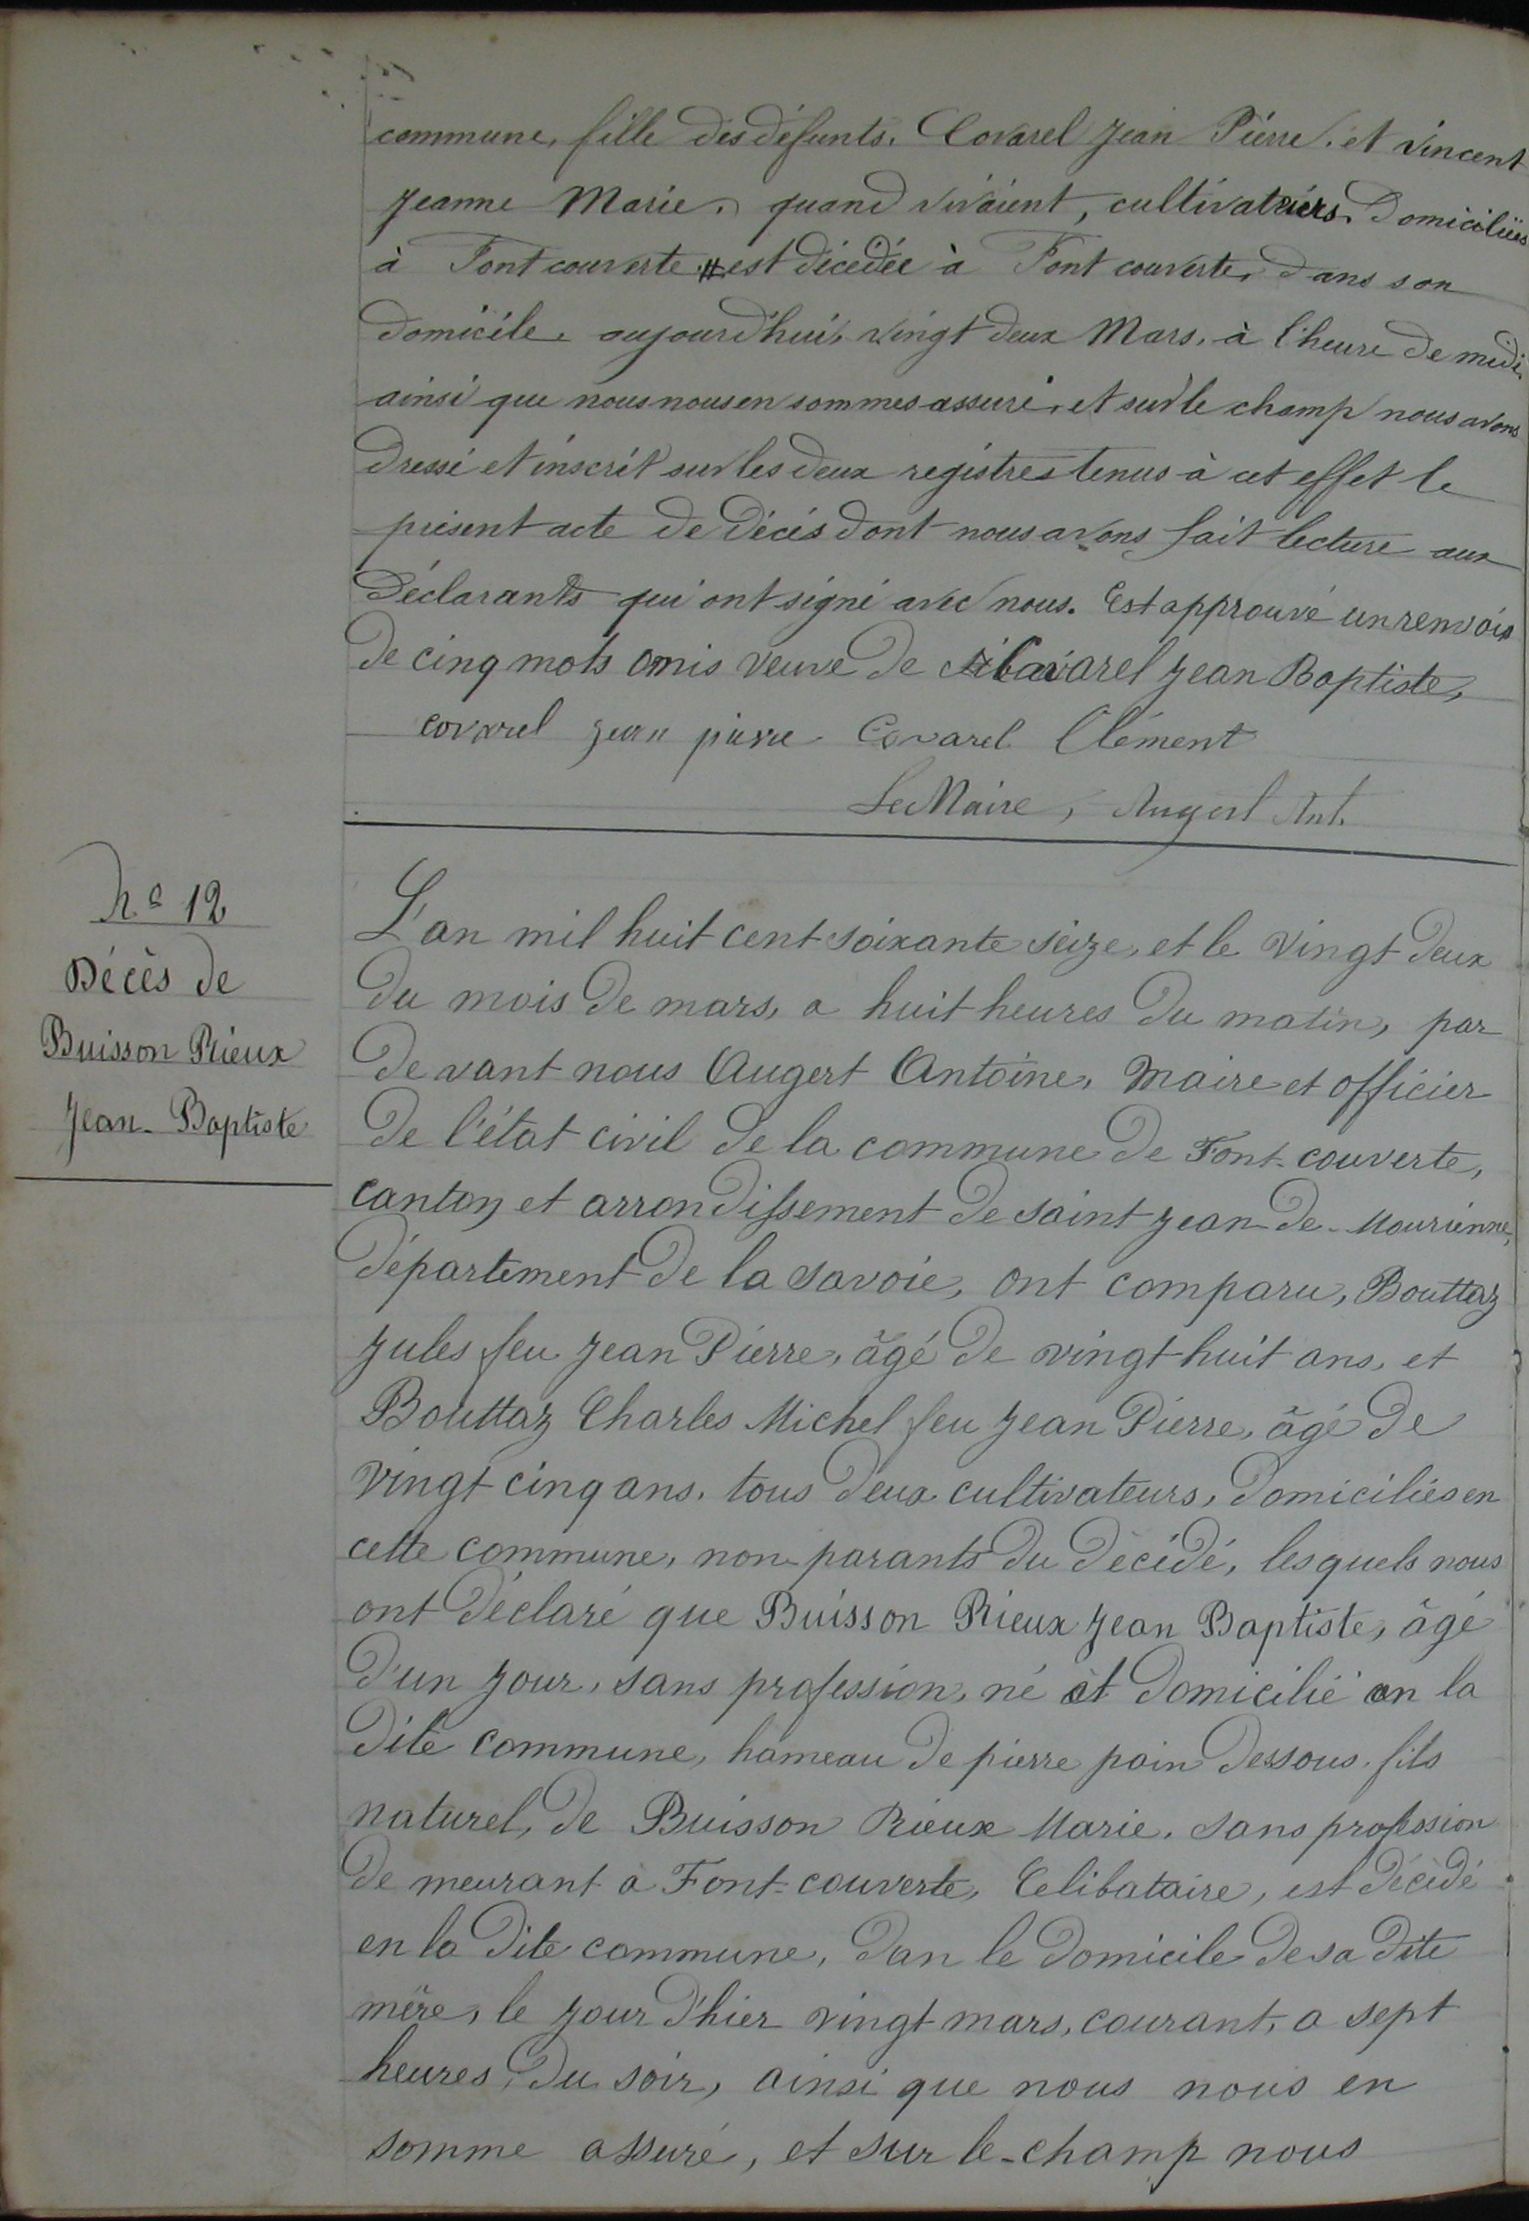 commune, fille des défunts. Covarel Jean Pierre. et Vincent
Jeanne Marie, quand vivaient, cultivateurs. Domiciliés
à Font couverte # est décédée à Font couverte, dans son
domicile. aujourd'hui, vingt deux Mars, à l'heure de midi.
ainsi que nous nous en sommes assuré, et sur le champ nous avons
dressé et inscrit sur les deux registres tenus à cet effet le
présent acte de décès dont nous avons fait lecture aux
déclarants qui ont signé avec nous. Est approuvé un renvois
de cinq mots omis veuve de Covarel Jean Baptiste,
covarel jean pierre Covarel Clément
Le Maire, Augert Ant.
N° 12
Décès de
Buisson Rieux
Jean-Baptiste
L'an mil huit cent soixante seize, et le vingt deux
du mois de mars, a huit heures du matin, par
devant nous Augert Antoine, Maire et officier
de l'état civil de la commune de Font-couverte,
canton et arrondissement de saint Jean-de-Maurienne,
département de la savoie, ont comparu, Bouttaz
Jules feu Jean Pierre, âgé de vingt-huit ans, et
Bouttaz Charles Michel feu Jean Pierre, âgé de
vingt cinq ans, tous deux cultivateurs, domiciliés en
cette commune, non parants du décédé, lesquels nous
ont déclaré que Buisson Rieux Jean Baptiste, âgé
d'un jour, sans profession, né et domicilié en la
dite commune, hameau de pierre pain dessous, fils
naturel, de Buisson Rieux Marie, sans profession
demeurant à Font-couverte, Celibataire, est décédé
en la dite commune, dan le domicile de sa dite
mère, le jour d'hier vingt mars, courant, a sept
heures du soir, ainsi que nous nous en
somme assuré, et sur le-champ nous